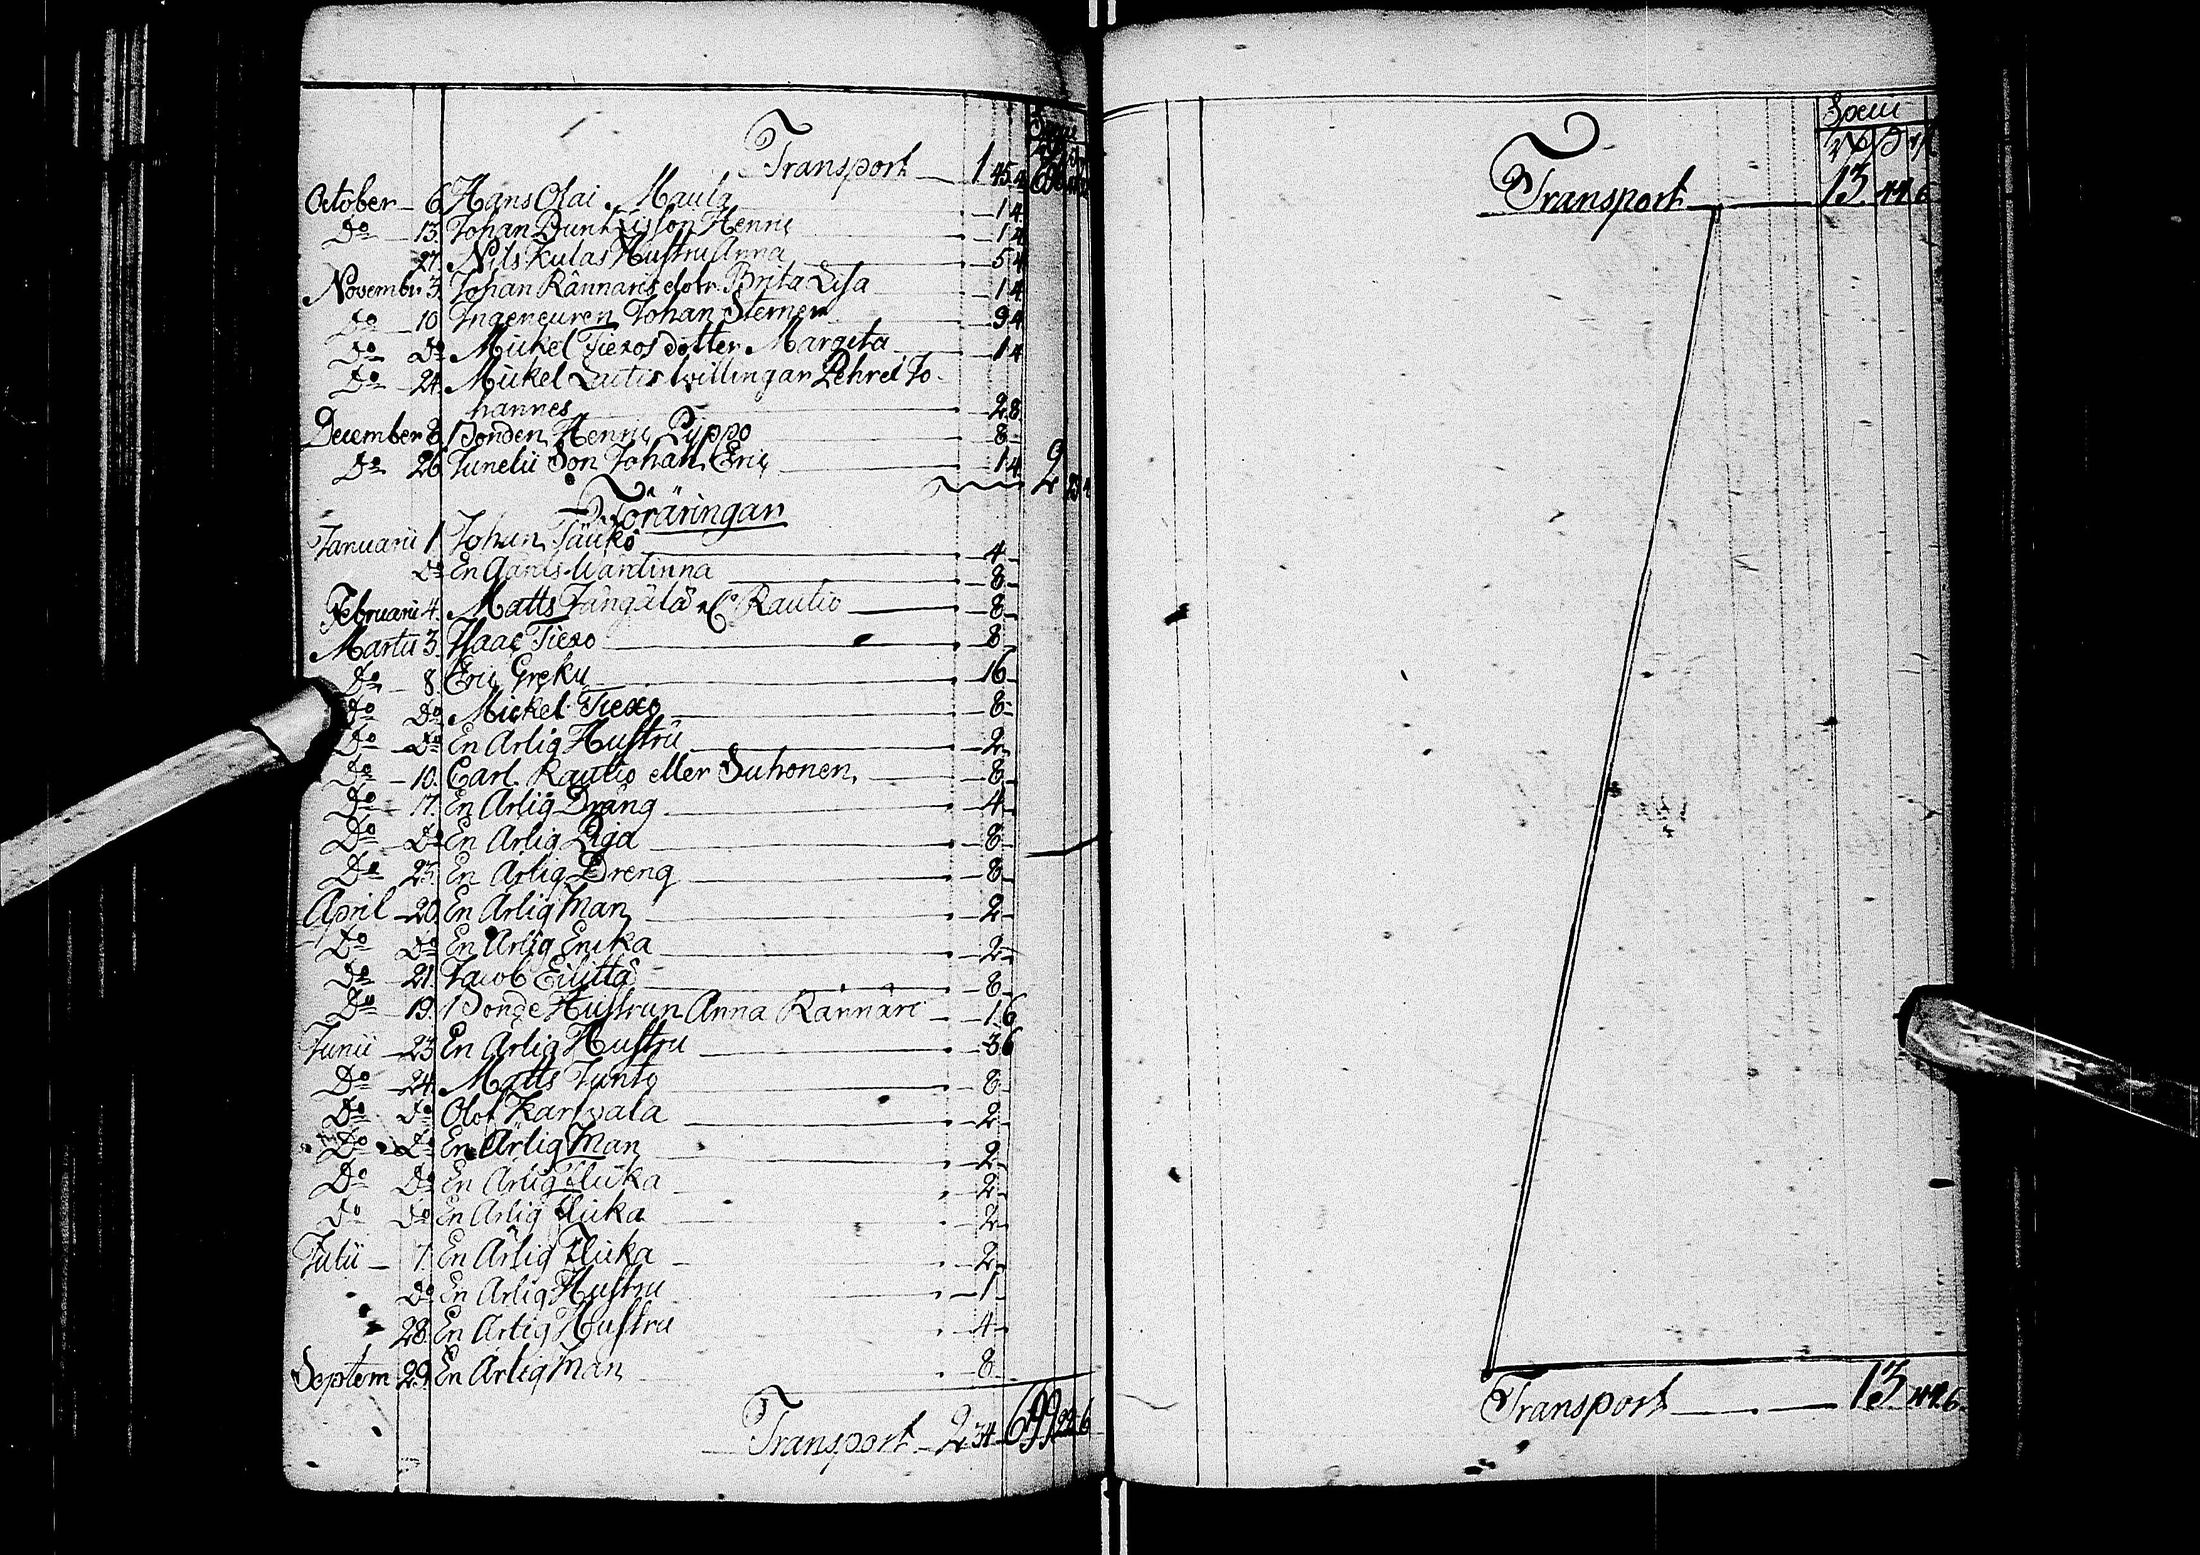 Transport 1 45 4
October 6 Hans Olai Maula 1 4
Do 13. Johan Henric 1 4
27. Nils Kulas Hustru Anna 5 4
Novembr 3. Johan Rännaris dotr. Brita Lisa 1 4
Do 10 Ingeneuren Johan Sterner 9 4
Do Do Mickel Tiexos dotter Margeta 1 4
Do 24. Mickel Lautis twillingar Pehr et Jo-
hannes 2 8
December 8 Bonden Henric Pyppo 8 -
Do 26 Junelii Son Johan Eric 1 4 2 23 4
Föräringar
Januarii 1. Johan 4
Do En 8
Februarii 4. Matts & Co Rautio 8
Martii 3. Isaac Tiexo 8
Do 8. Eric Greku 16
Do Do Mickel Tiexo 8
Do Do En Ärlig Hustru 2
Do 10. Carl Rautio eller Suhonen 8
Do 17. En Ärlig Dräng 4
Do Do En Ärlig Piga 8
Do 23. En Ärlig Dreng 8
April 20. En Ärlig Man 2
Do Do En Ärlig Encka 2
Do 21. Jacob 8
Do 19. Bonde Hustrun Anna Rännäri 16
Junii 23 En Ärlig Hustru 36
Do 24. Matts Junto 8
Do Do Olof Karlvala 2
Do Do En Ärlig Man 2
Do Do En Ärlig Flicka 2
Do Do En Ärlig Flicka 2
Julii 7. En Ärlig Flicka 2
Do En Ärlig Hustru 1
28. En Ärlig Hustru 4
Septem 29. En Ärlig Man 8
Transport 2 34 699 22 6
Specii
Transport 13. 44. 6
Transport 13. 44. 6.